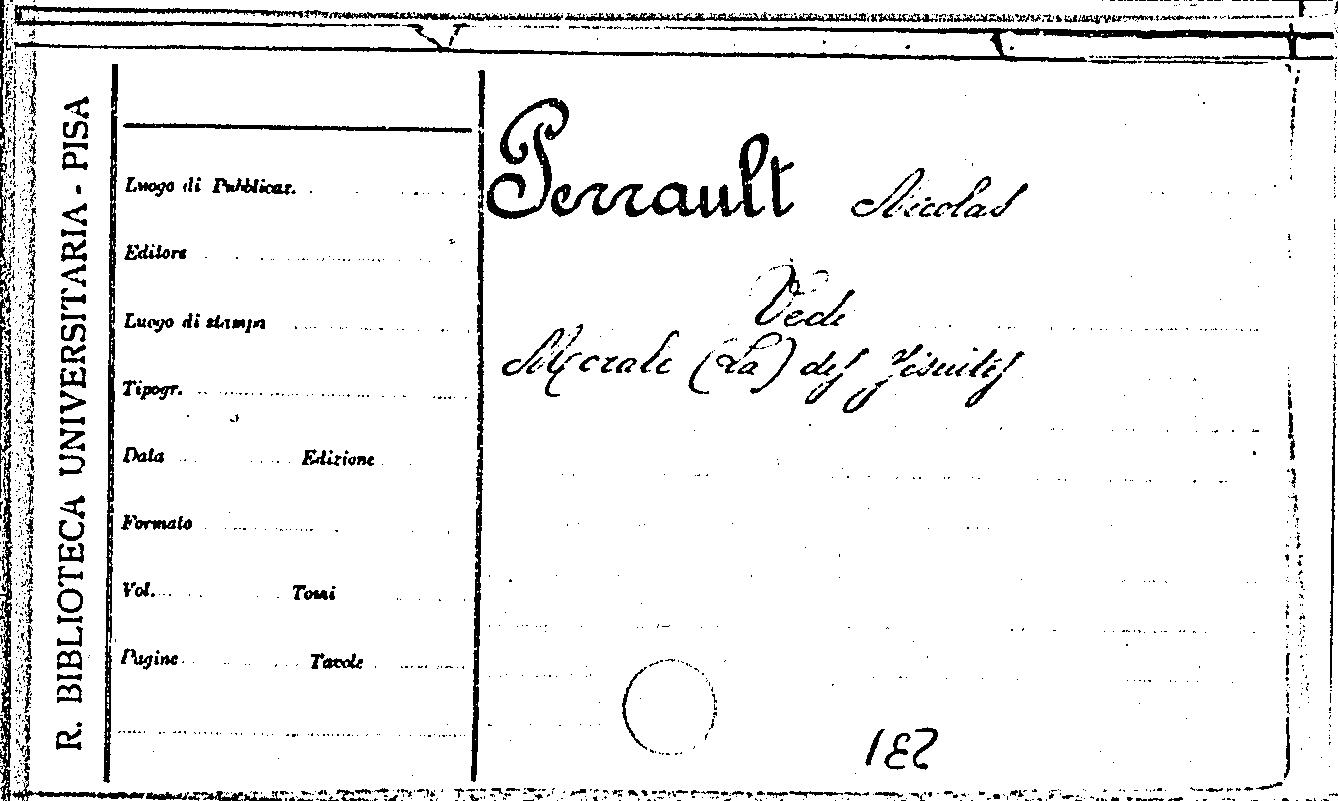 R. BIBLIOTECA UNIVERSITARIA - PISA
Luogo di Pubblicaz.
Editore
Luogo di stampa
Tipogr.
Data Edizione
Formato
Vol. Tomi
Pagine Tavole
Perrault Nicolas
Vedi
Morale (La) des Jésuites
231